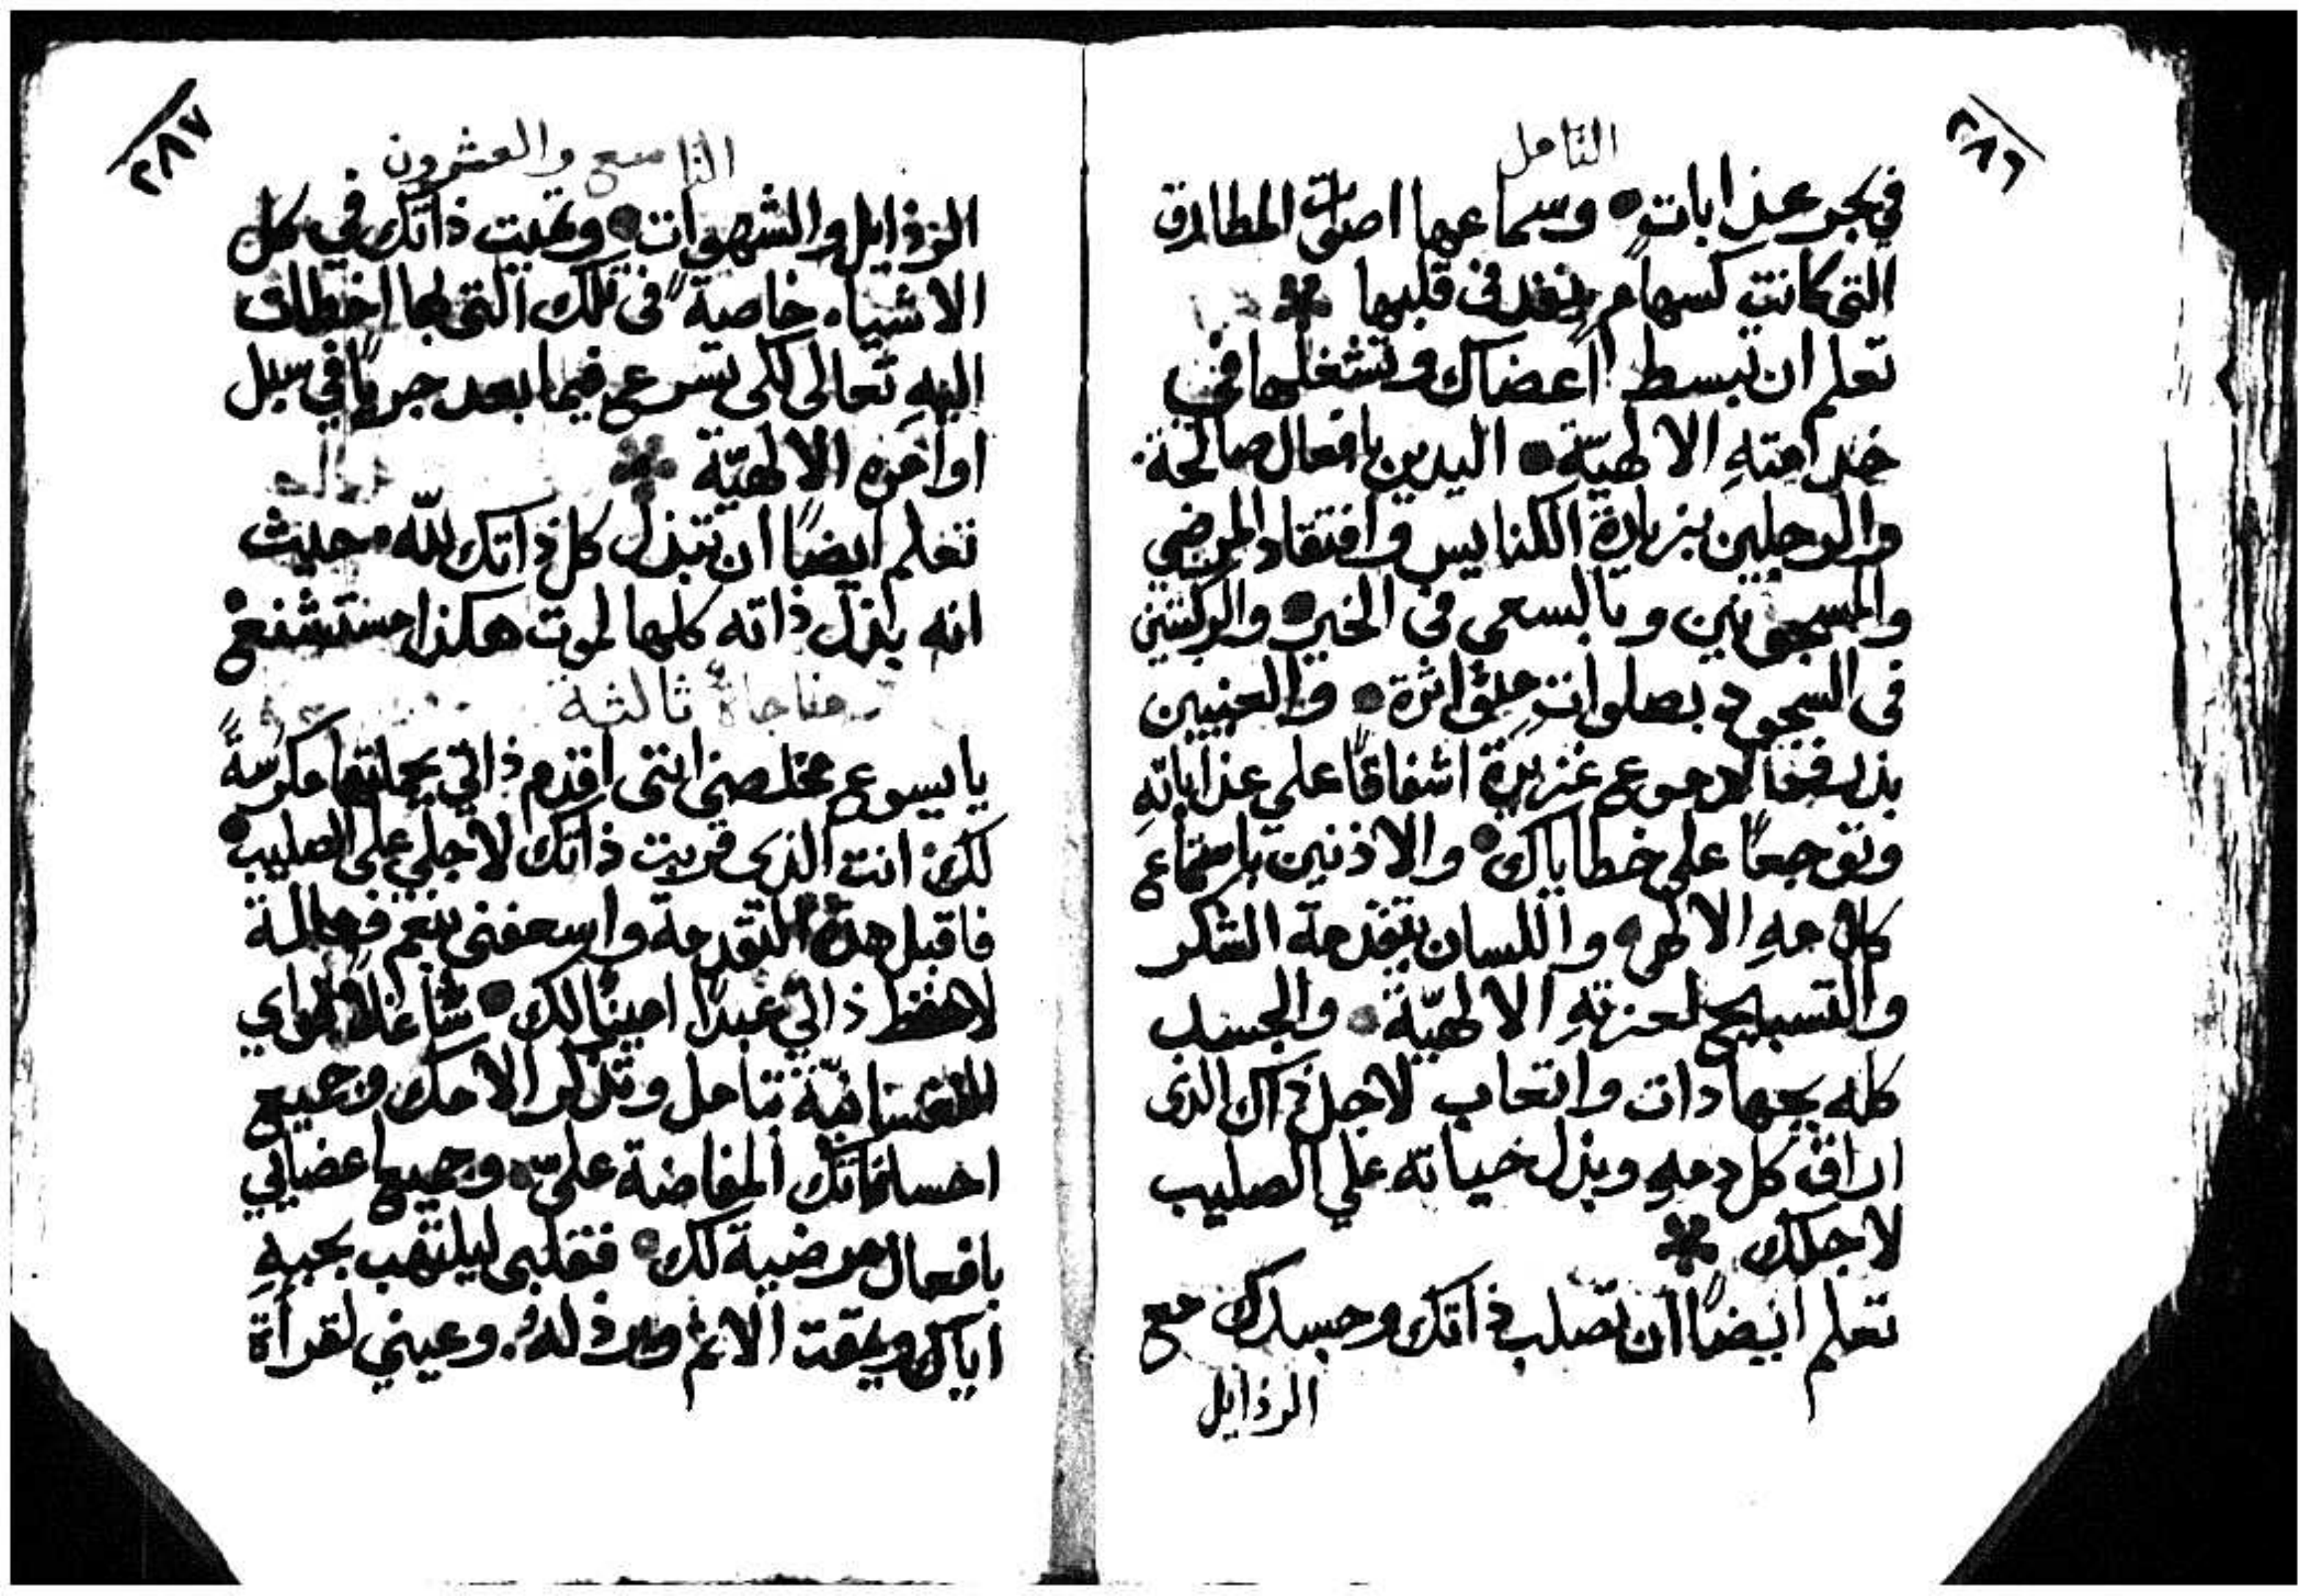 ٢٨٦
التامل
في بحر عذابات وسماعها اصوات المطارق
التي كانت كسهام ينفد في قلبها
تعلم ان تبسط اعضاك وتشغلها في
خدامتهِ الالهيّة اليدين بافعال صالحة
والرجلين بزيارة الكنايس وافتقاد المرضي
والمسجونين وبالسعي في الخير والركبتين
في السجود بصلوات متواترة والعينين
بذرف دموع غزيرة اشفاقًا علي عذاباتهِ
وتوجعًا علي خطاياك والاذنين باستماع
كلامهِ الالهي واللسان بتقدمة الشكر
والتسبيح لعزتهِ الالهيّة والجسد
كله بجهادات واتعاب لاجل ذاك الذي
اراق كل دمهِ وبذل حياته علي الصليب
لاجلك
تعلم ايضًا ان تصلب ذاتك وجسدك مع
الرذايل
٢٨٧
التاسع والعشرون
الرذايل والشهوات وتميت ذاتك في كل
الاشياء خاصةً في تلك التي لها اخطاف
اليهِ تعالى لكي تسرع فيما بعد جريًا في سبل
اوامره الالهيّة
تعلم ايضًا ان تبذل كل ذاتك لله حيث
انه باذل ذاته كلها لموت هكذا مستشنع
مناجاة ثالثة
يا يسوع مخلصي انني اقدم ذاتي بجملتها مكرسةً
لك انت الذي قربت ذاتك لاجلي على الصليب
فاقبل هذه التقدمة واسعفني بنعم فعالة
لاحفظ ذاتي عبدًا امينًا لك شاغلًا قواي
النفسانيّة بتامل وتذكر الامك وجميع
احساناتك المفاضة عليّ وجميع اعضايي
بافعال مرضية لك فقلبي ليلتهب بحبهِ
اياك ويمقت الاثم ويرذله وعيني لقراة